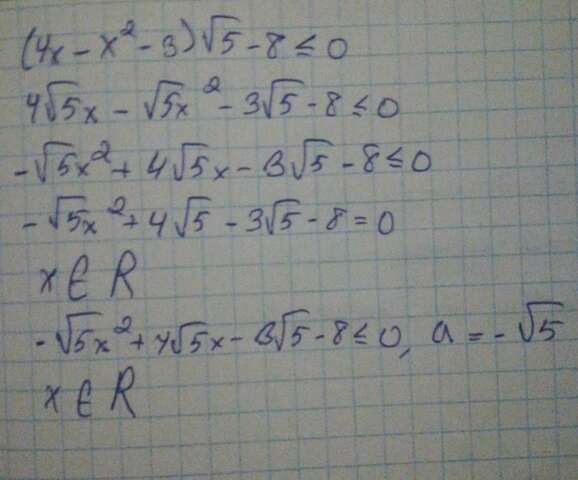 (4x - x² - 3)√5 - 8 ≤ 0
4√5x - √5x² - 3√5 - 8 ≤ 0
-√5x² + 4√5x - 3√5 - 8 ≤ 0
-√5x² + 4√5 - 3√5 - 8 = 0
x ∈ R
-√5x² + 4√5x - 3√5 - 8 ≤ 0, a = -√5
x ∈ R